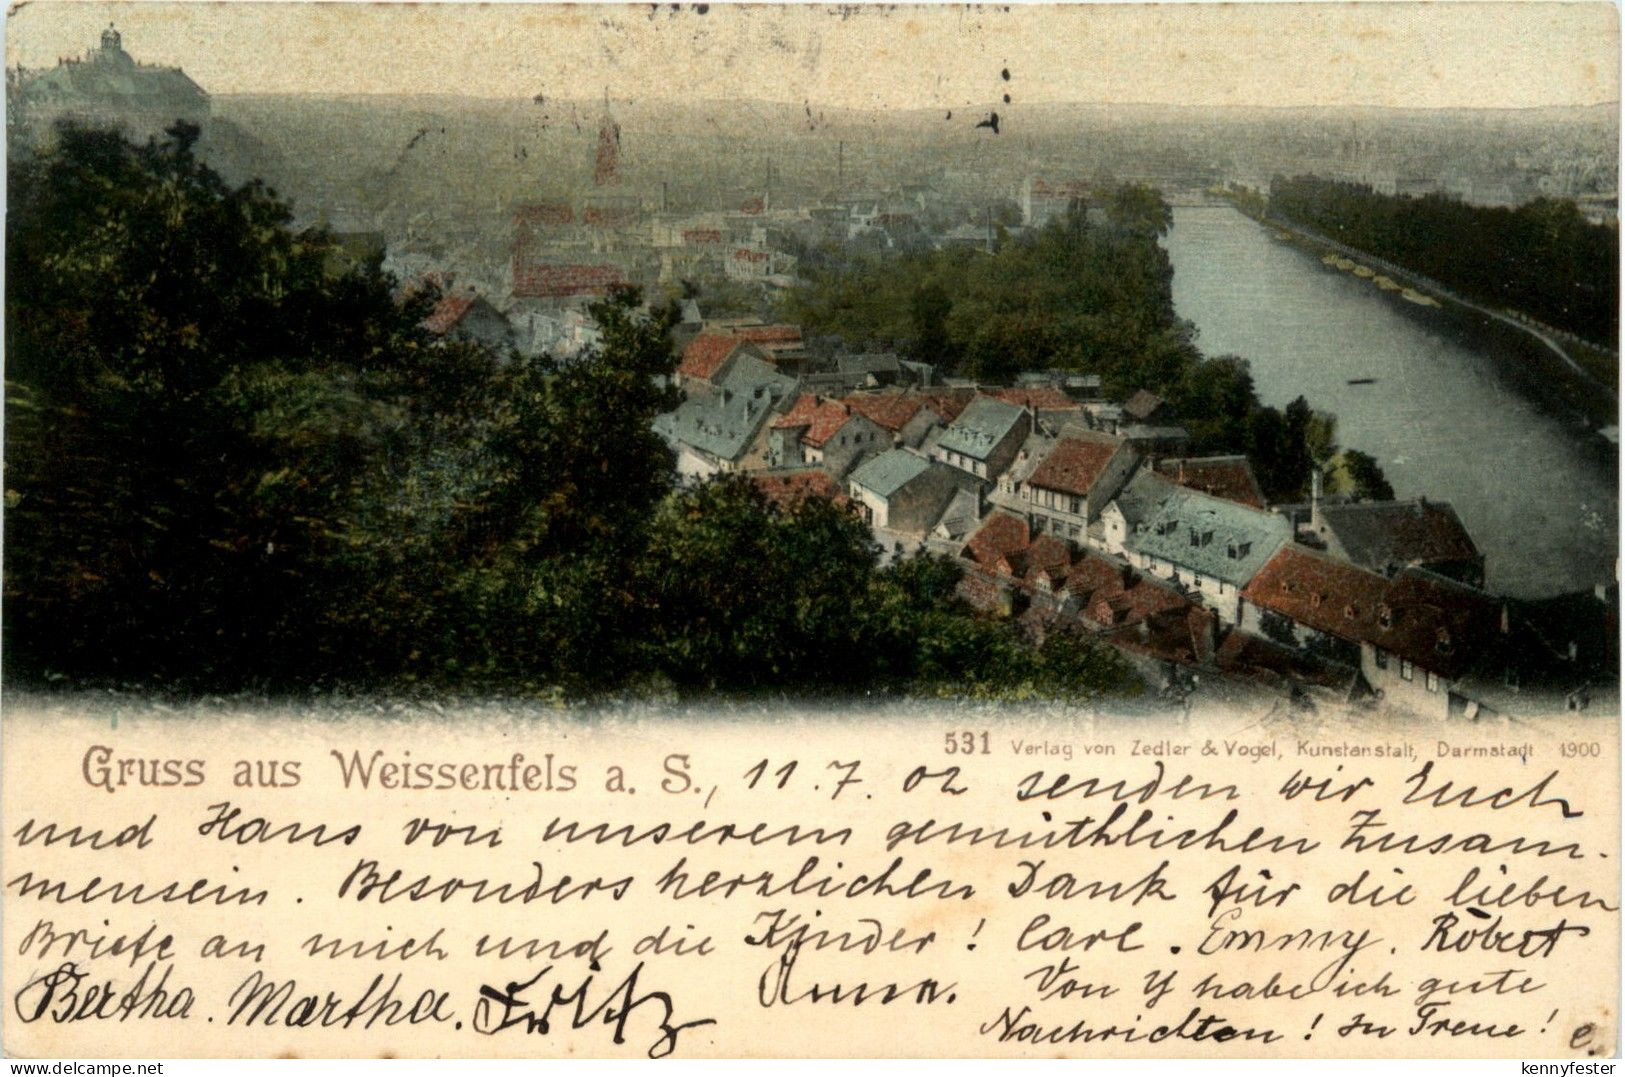 531 Verlag von Zedler & Vogel, Kunstanstalt, Darmstadt 1900
Gruss aus Weissenfels a. S., 11.7.02 senden wir Euch
und Hans von unserem gemüthlichen Zusam-
mensein. Besonders herzlichen Dank für die lieben
Briefe an mich und die Kinder! Carl. Emmy. Robert
Bertha. Martha. Fritz Anna. Von Y habe ich gute
Nachrichten! In Treue! C.
kennyfester